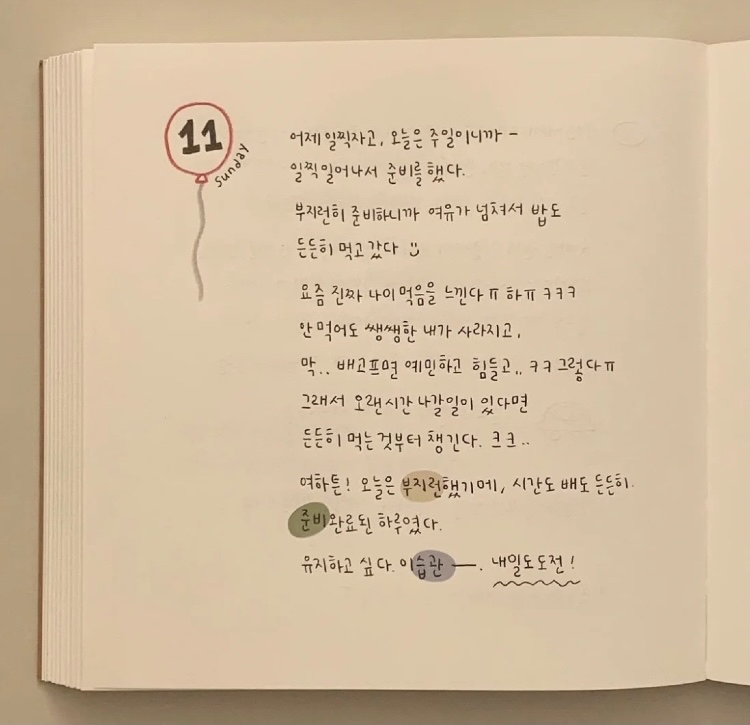 11
Sunday
어제 일찍자고, 오늘은 주일이니까 -
일찍 일어나서 준비를 했다.
부지런히 준비하니까 여유가 넘쳐서 밥도
든든히 먹고 갔다
요즘 진짜 나이 먹음을 느낀다 ㅠ 하ㅠ ㅋㅋㅋ
안 먹어도 쌩쌩한 내가 사라지고,
막.. 배고프면 예민하고 힘들고.. ㅋㅋ 그렇다ㅠ
그래서 오랜시간 나갈일이 있다면
든든히 먹는것부터 챙긴다. 크크..
여하튼! 오늘은 부지런했기에, 시간도 배도 든든히.
준비완료된 하루였다.
유지하고 싶다. 이습관 —. 내일도 도전!